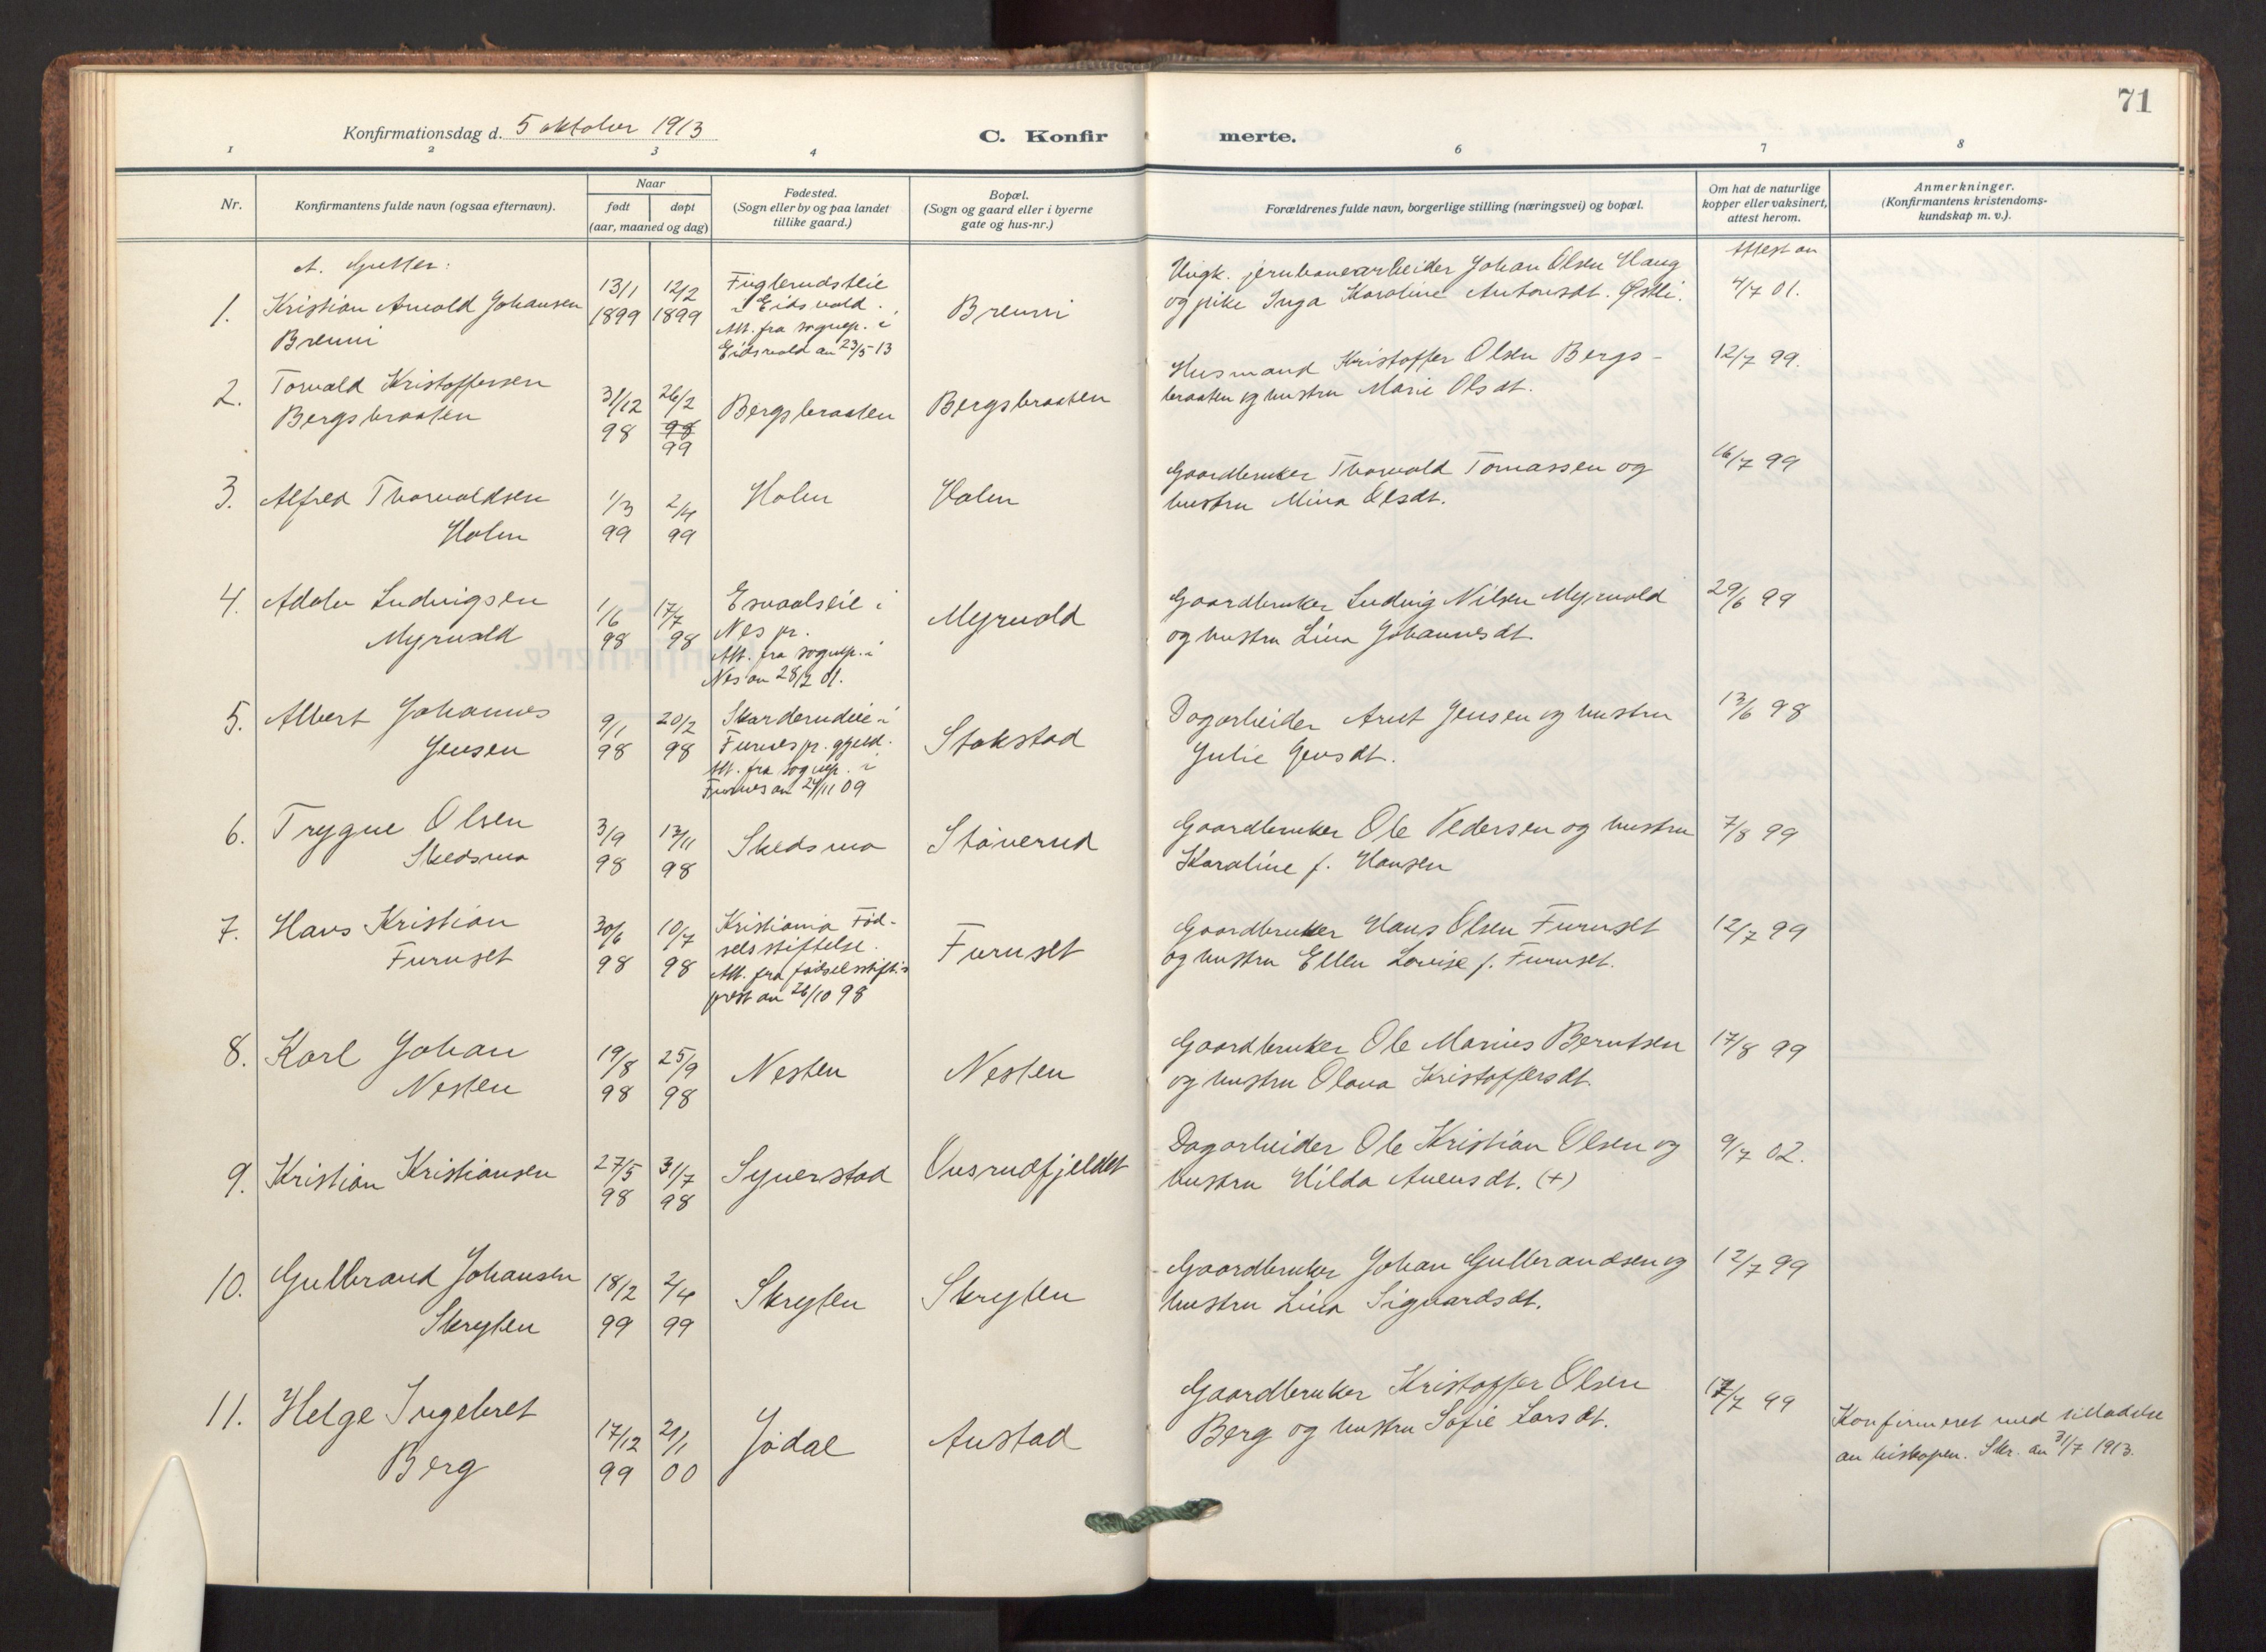 71
Konfirmationsdag d. 5 oktober 1913
C. Konfirmerte.
1 2 3 4 6 7 8
Nr.
Konfirmantens fulde navn (ogsaa efternavn).
Naar
født døpt
(aar, maaned og dag)
Fødested.
(Sogn eller by og paa landet
tillike gaard.)
Bopæl.
(Sogn og gaard eller i byerne
gate og hus-nr.)
Forældrenes fulde navn, borgerlige stilling (næringsvei) og bopæl.
Om hat de naturlige
kopper eller vaksinert,
attest herom.
Anmerkninger.
(Konfirmantens kristendoms-
kundskap m. v.).
A. Gutter:
1.
Kristian Arnold Johansen
Brenni
13/1
1899
12/2
1899
Fuglerudseie
i Eidsvold.
Att. fra sognep. i
Eidsvold av 23/5 13
Brenni
Ungk. jernbanearbeider Johan Olsen Haug
og pike Inga Karoline Antonsdt. Østli.
Attest av
4/7 01.
2.
Torvald Kristoffersen
Bergsbraaten
31/12
98
26/2
98
99
Bergsbraaten
Bergsbraaten
Husmand Kristoffer Olsen Bergs-
braaten og hustru Marie Olsdt.
12/7 99.
3.
Alfred Thorvaldsen
Holen
1/3
99
2/4
99
Holen
Holen
Gaardbruker Thorvald Tomassen og
hustru Mina Olsdt.
16/7 99
4.
Adolv Ludvigsen
Myrvold
1/6
98
17/7
98
Esvaalseie i
Nes pr.
Att. fra sognep. i
Nes av 28/2 01.
Myrvold
Gaardbruker Ludvig Nilsen Myrvold
og hustru Lina Johannesdt.
29/6 99
5.
Albert Johannes
Jensen
9/1
98
20/2
98
Skarderudeie i
Furnes pr.gjeld.
Att. fra sognep. i
Furnes av 24/11 09
Stokstad
Dagarbeider Arnt Jensen og hustru
Julie Jensdt.
13/6 98
6.
Trygve Olsen
Skedsmo
3/9
98
13/11
98
Skedsmo
Støverud
Gaardbruker Ole Pedersen og hustru
Karoline f. Hansen
7/8 99
7.
Hans Kristian
Furuset
30/6
98
10/7
98
Kristiania Fød-
selsstiftelse.
Att. fra fødselsstift.s
prest av 26/10 98
Furuset
Gaardbruker Hans Olsen Furuset
og hustru Ellen Lovise f. Furuset.
12/7 99
8.
Karl Johan
Nesten
19/8
98
25/9
98
Nesten
Nesten
Gaardbruker Ole Marius Berntsen
og hustru Olava Kristoffersdt.
17/8 99
9.
Kristian Kristiansen
27/5
98
31/7
98
Syverstad
Ovsrudfjeldet
Dagarbeider Ole Kristian Olsen og
hustru Hilda Avensdt. (+)
9/7 02.
10.
Gulbrand Johansen
Skryten
18/2
99
2/4
99
Skryten
Skryten
Gaardbruker Johan Gulbrandsen og
hustru Lina Sigvardsdt.
12/7 99
11.
Helge Ingebret
Berg
17/12
99
21/1
00
Jødal
Austad
Gaardbruker Kristoffer Olsen
Berg og hustru Sofie Larsdt.
17/7 99
Konfirmeret med tilladelse
av biskopen. Skr. av 31/7 1913.